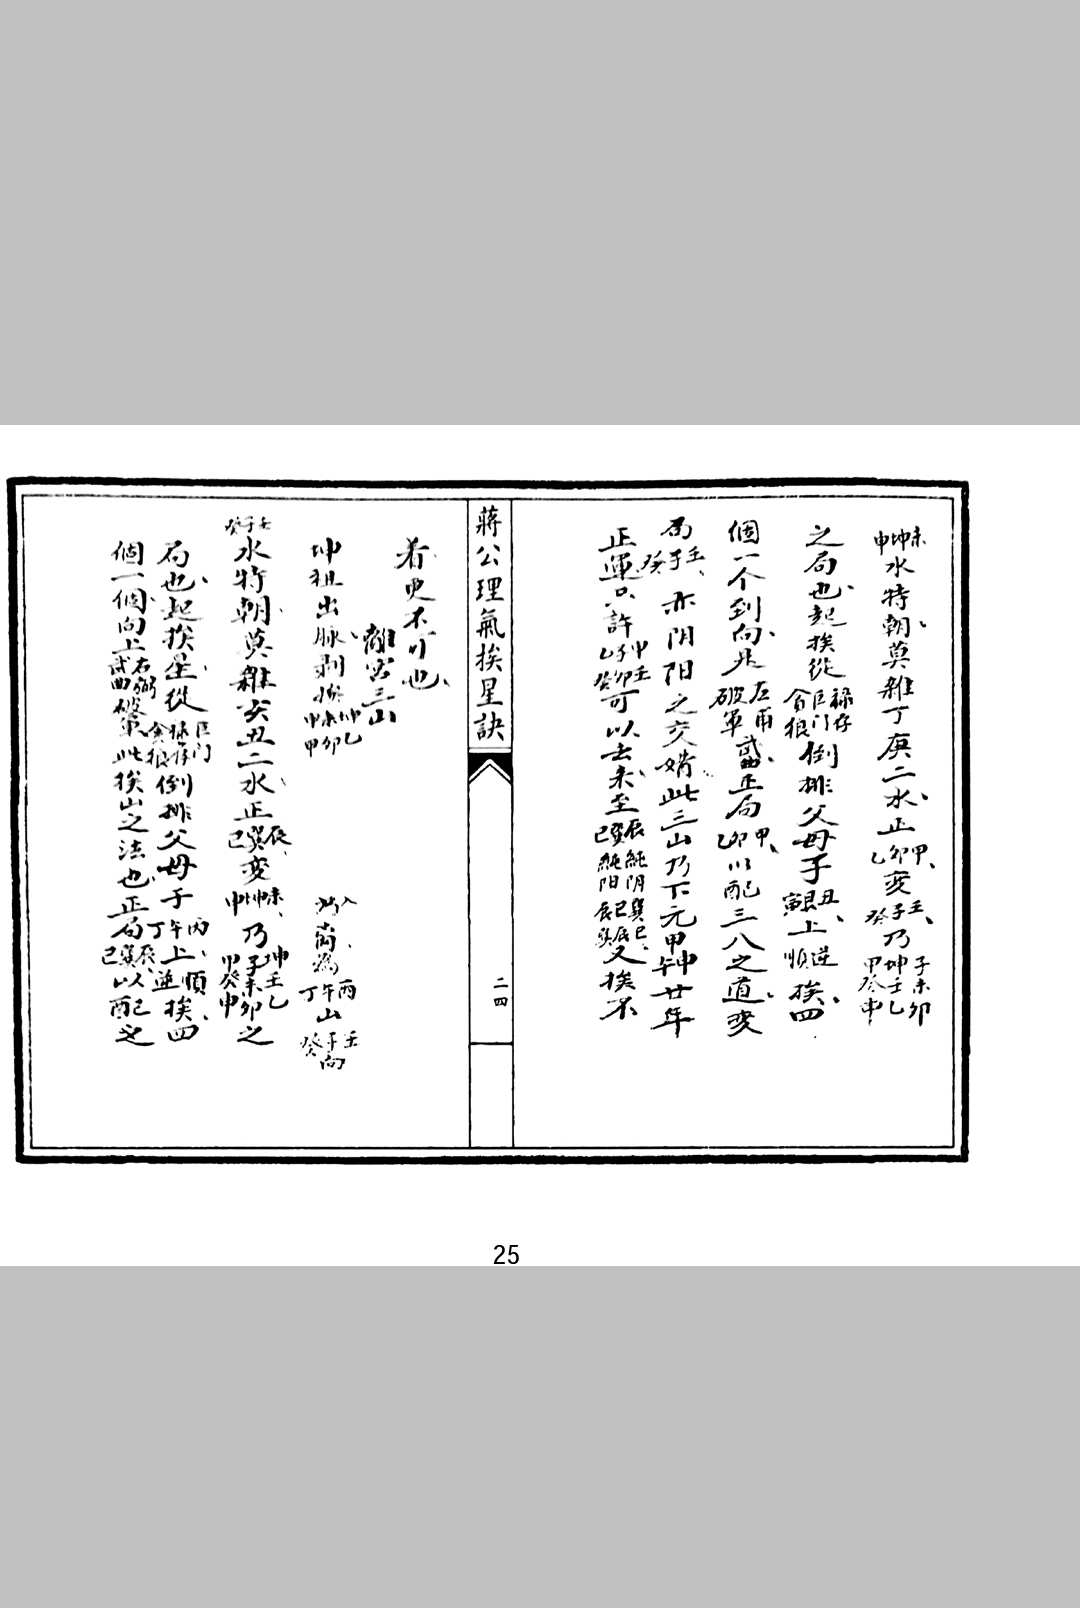 未坤申水特朝莫雜丁庚二水正甲卯乙变壬子癸乃子未卯坤壬乙甲癸申
之局也起挨從祿存巨门貪狼倒排父母子丑艮寅上逆順挨四
個一个到向是左甫破軍武曲正局甲卯乙以配三八之道变
局壬子癸亦阴阳之交媾此三山乃下元甲申廿年
正運只許坤壬乙子卯癸可以去来至辰巽巳純阴純阳巽巳辰又挨不
蔣公理氣挨星訣
二四
看更不可也
離宮三山
坤祖出脉剥換坤乙未卯申甲入首為丙午丁山壬子癸向
壬子癸水特朝莫雜亥丑二水正辰巽巳变未坤申乃坤壬乙子未卯甲癸申之
局也起挨星從巨门祿存貪狼倒排父母子丙午丁上順逆挨四
個一個向上右弼武曲破軍此挨山之法也正局辰巽巳以配之
25